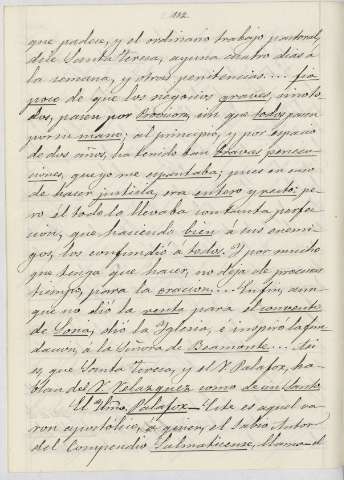 112.
que padece, y el ordinario trabajo pastoral,
dice Santa Teresa, ayuna cuatro dias á
la semana, y otras penitencias.... fia
poco de que los negocios graves, ni to
dos, pasen por Provisor, sin que todos pasen
por su mano; al principio, y por espacio
de dos años, ha tenido tan bravas persecu
ciones, que yo me espantaba; pues en caso
de hacer justicia, era entero y recto: pe
ro él todo lo llevaba con tanta perfec
cion, que haciendo bien á sus enemi
gos, los confundió á todos. Y por mucho
que tenga que hacer, no deja de procurar
tiempo, para la oracion... Enfin, aun
que no dió la renta para el convento
de Soria, dió la Yglesia, é inspiro la fun
dacion, á la Señora de Beamonte... Asi
es, que Santa Teresa, y el V. Palafox, ha
blan del V. Velazquez como de un Santo
El Ylmo. Palafox—Este es aquel va
ron apostólico, á quien, el Sabio Autor
del Compendio Salmaticense, llama el